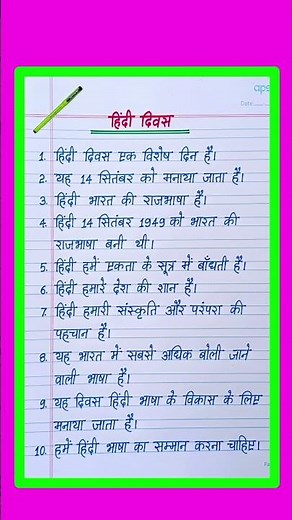 aps
Date
हिंदी दिवस
1. हिंदी दिवस एक विशेष दिन है।
2. यह 14 सितंबर को मनाया जाता है।
3. हिंदी भारत की राजभाषा है।
4. हिंदी 14 सितंबर 1949 को भारत की
राजभाषा बनी थी।
5. हिंदी हमें एकता के सूत्र में बाँधती है।
6. हिंदी हमारे देश की शान है।
7. हिंदी हमारी संस्कृति और परंपरा की
पहचान है।
8. यह भारत में सबसे अधिक बोली जाने
वाली भाषा है।
9. यह दिवस हिंदी भाषा के विकास के लिए
मनाया जाता है।
10. हमें हिंदी भाषा का सम्मान करना चाहिए।